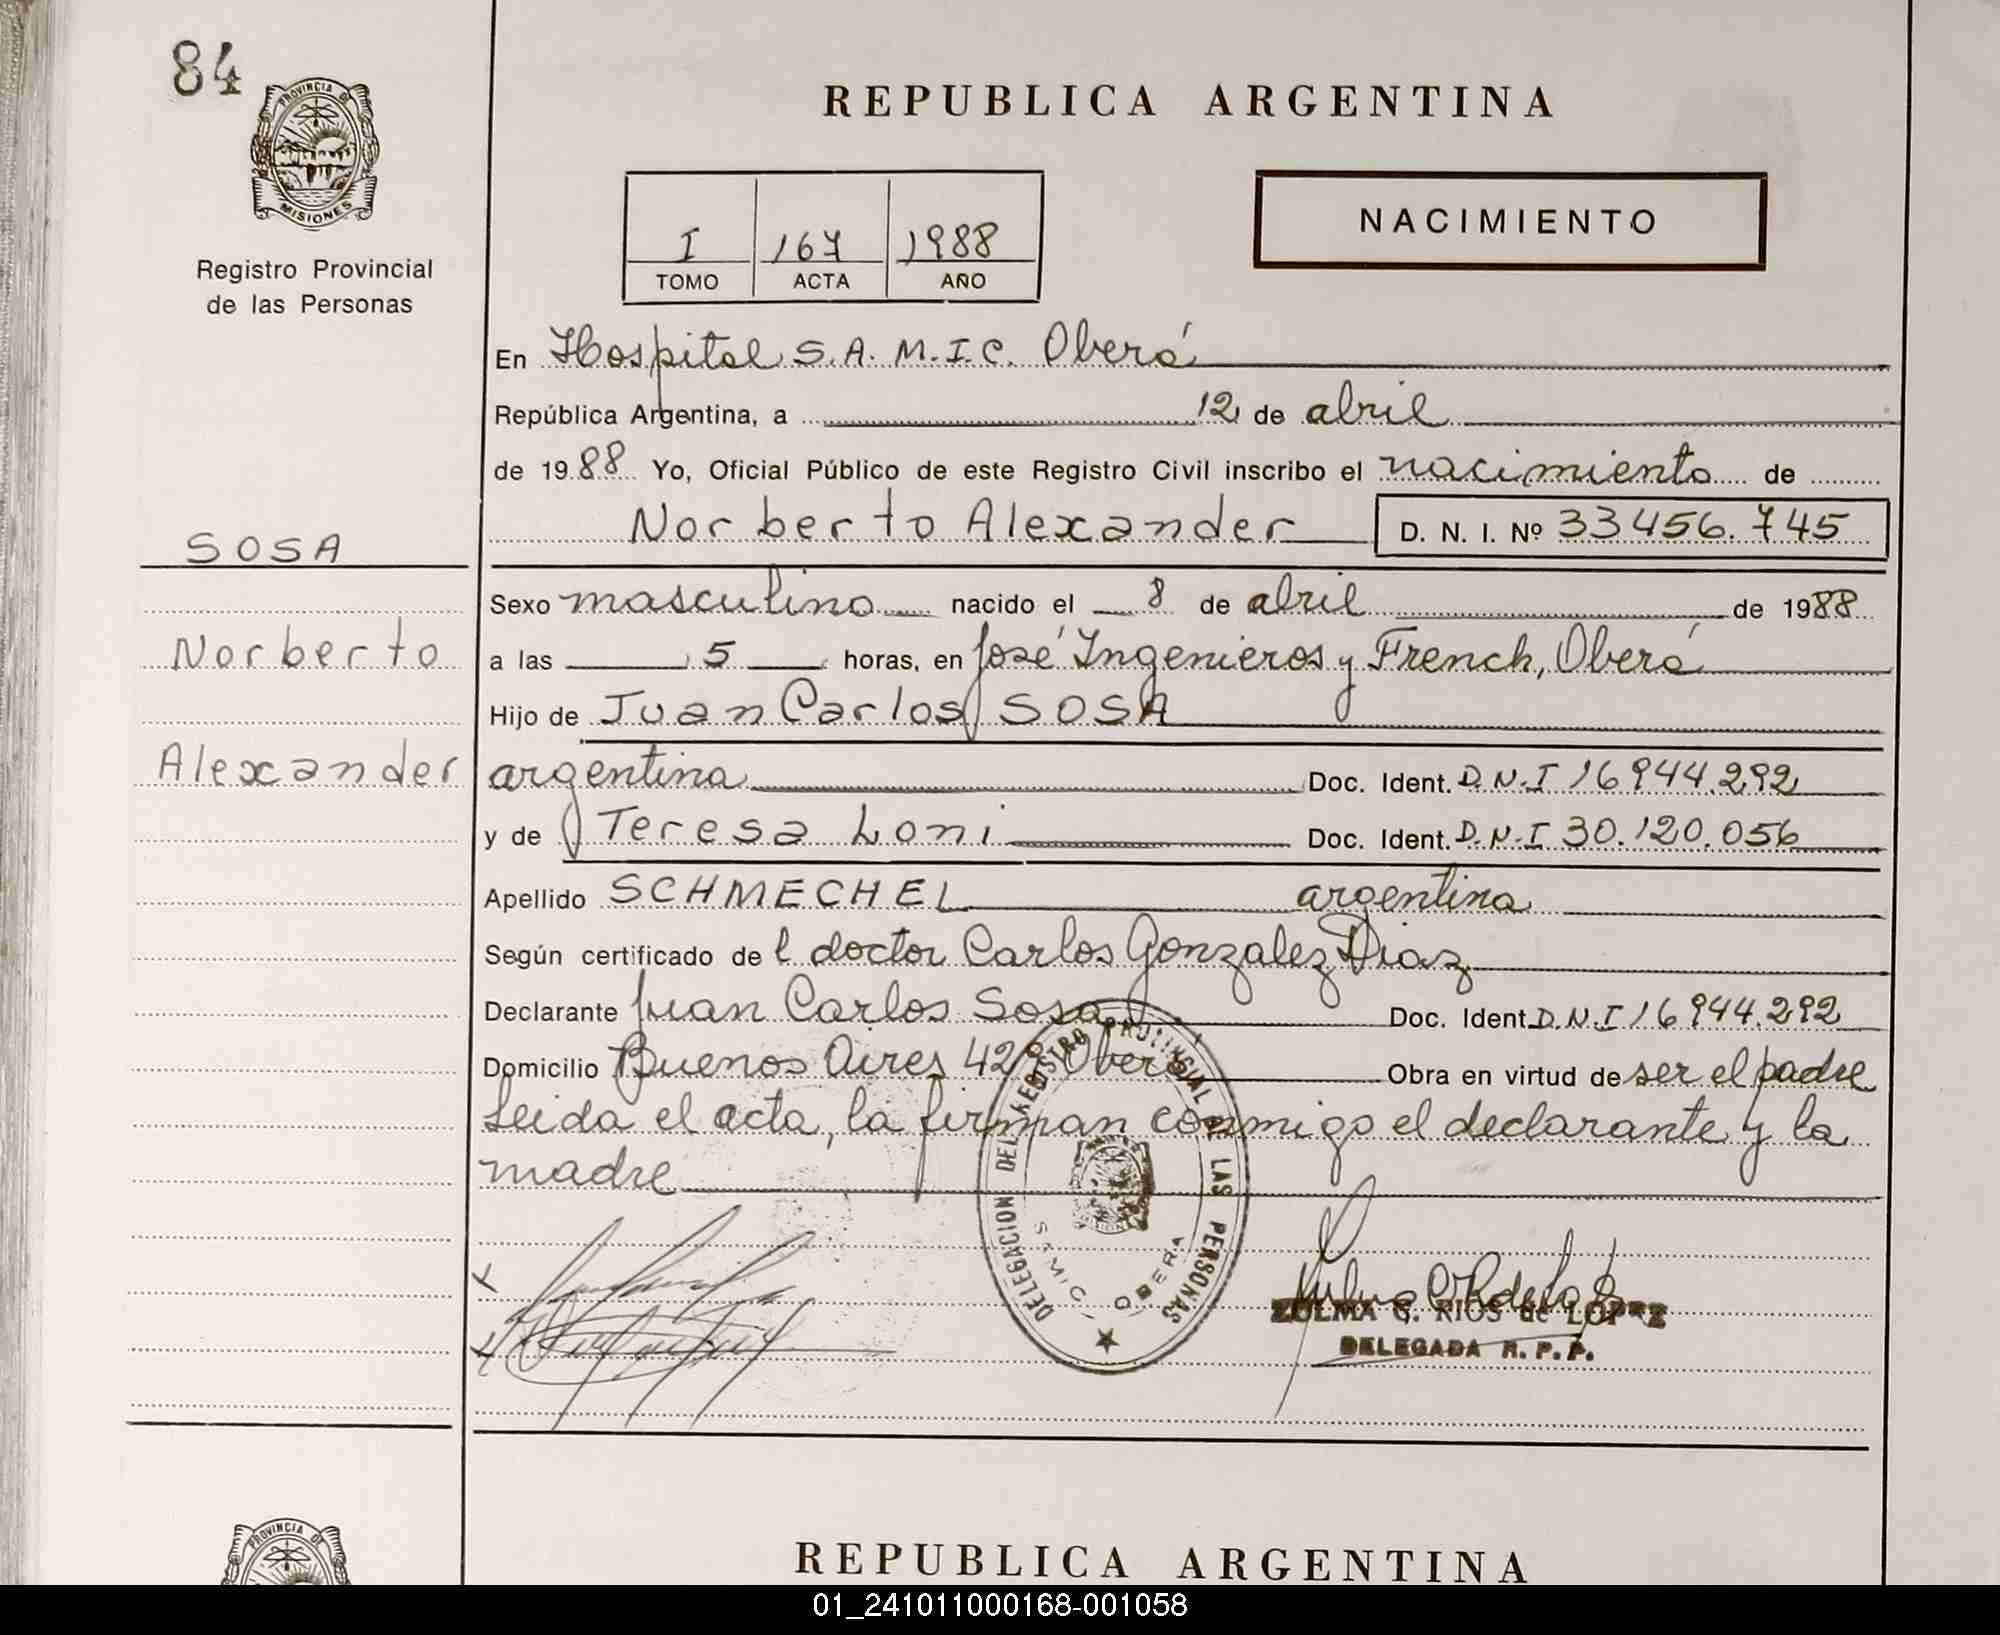 84
PROVINCIA DE
MISIONES
Registro Provincial
de las Personas
REPUBLICA ARGENTINA
I 167 1988
TOMO ACTA AÑO
NACIMIENTO
En Hospital S.A.M.I.C. Oberá
República Argentina, a 12 de abril
de 1988 Yo, Oficial Público de este Registro Civil inscribo el nacimiento de
Norberto Alexander D. N. I. Nº 33456.745
SOSA
Norberto
Alexander
Sexo masculino nacido el 8 de abril de 1988
a las 5 horas, en José Ingenieros y French, Oberá
Hijo de Juan Carlos SOSA
argentina Doc. Ident. D.N.I 16944.292
y de Teresa Loni Doc. Ident. D.N.I 30.120.056
Apellido SCHMECHEL argentina
Según certificado del doctor Carlos Gonzalez Diaz
Declarante Juan Carlos Sosa Doc. Ident. D.N.I 16944.292
Domicilio Buenos Aires Oberá Obra en virtud de ser el padre
Leida el acta, la firman conmigo el declarante y la
madre
DELEGACION DEL REGISTRO PROVINCIAL DE LAS PERSONAS
SAMIC, OBERA
ZULMA G. RIOS de LOPEZ
DELEGADA R. P. P.
PROVINCIA DE
REPUBLICA ARGENTINA
01_241011000168-001058